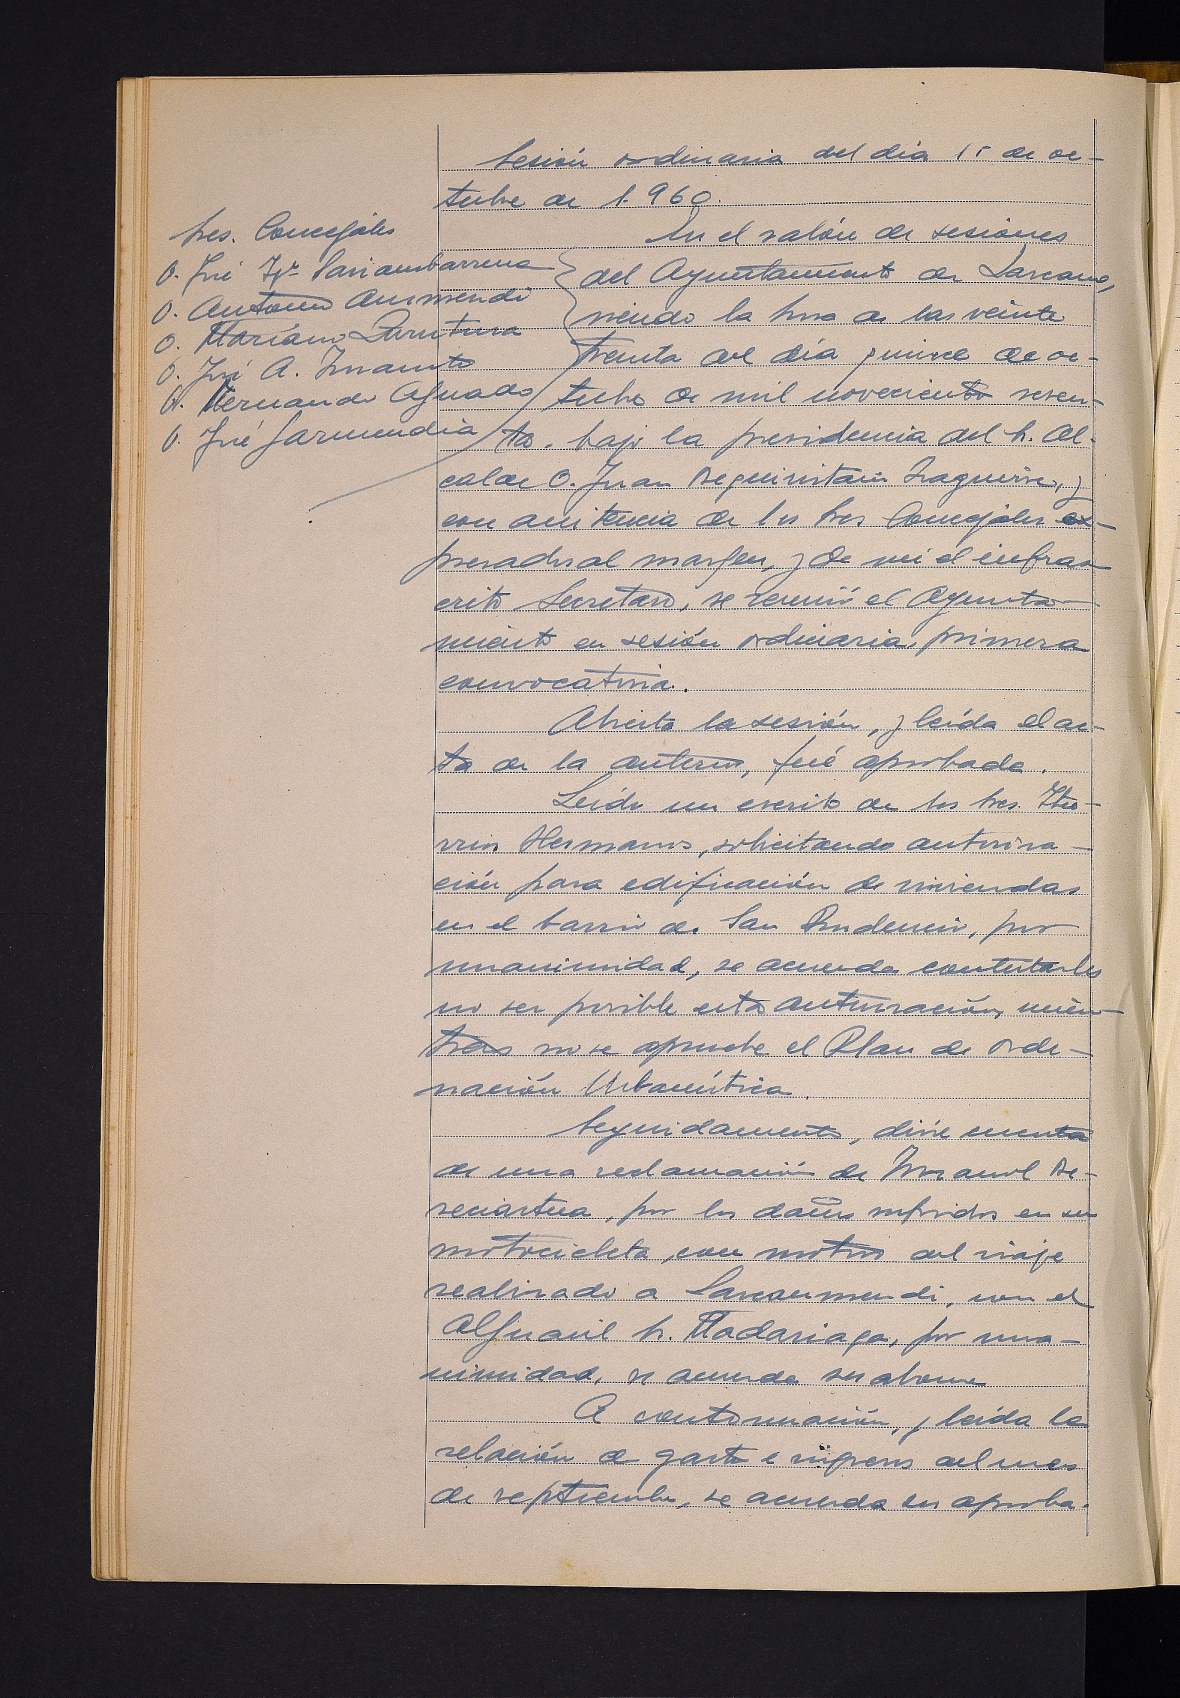 Sesión ordinaria del día 15 de oc-
tubre de 1.960.
Sres. Concejales
D. José Mª Sariambarrena
D. Antonio Aurmendi
D. Mariano
D. José A.
D. Hernando Aguado
D. José Garmendia
En el salón de sesiones
del Ayuntamiento de Lazcano,
siendo la hora de las veinte
treinta del día quince de oc-
tubre de mil novecientos sesen-
ta, bajo la presidencia del Sr. Al-
calde D. Juan Beguiristain, y
con asistencia de los Sres Concejales ex-
presados al margen, y de mi el infras-
crito Secretario, se reunió el Ayunta-
miento en sesión ordinaria, primera
convocatoria.
Abierta la sesión, y leída el ac-
ta de la anterior, fué aprobada.
Leído un escrito de los Sres. Itu-
rrioz Hermanos, solicitando autoriza-
ción para edificación de viviendas
en el barrio de San Prudencio, por
unanimidad, se acuerda contestarles
no ser posible esta autorización, mien-
tras no se apruebe el Plan de Orde-
nación Urbanística.
Seguidamente, dióse cuenta
de una reclamación de Imanol Be-
reciartua, por los daños sufridos en su
motocicleta, con motivo del viaje
realizado a Lazcaumendi, con el
Alguacil Sr. Madariaga, por una-
nimidad, se acuerda su abono
A continuación, y leída la
relación de gastos e ingresos del mes
de septiembre, se acuerda su aproba-